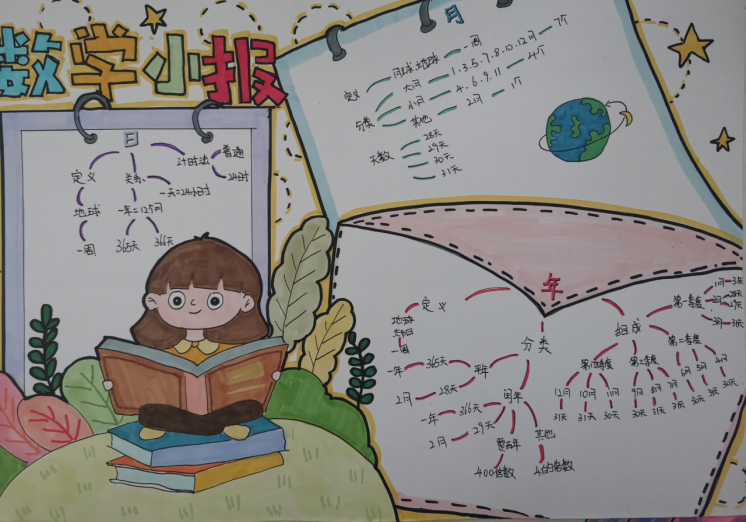 数学小报
日
定义
关系
计时法
普通
24时
地球
一年=12个月
一天=24小时
一周
365天
366天
月
定义
月球绕地球
一周
分类
大月
1.3.5.7.8.10.12月
7个
小月
4.6.9.11
4个
其他
2月
1个
天数
28天
29天
30天
31天
年
定义
地球
一周
分类
平年
365天
一年
28天
2月
闰年
366天
一年
29天
2月
整百年
400倍数
其他
4的倍数
组成
第一季度
1月
31天
2月
28天
29天
3月
31天
第二季度
4月
5月
6月
30天
31天
30天
第三季度
9月
8月
7月
30天
31天
31天
第四季度
12月
10月
11月
31天
31天
30天